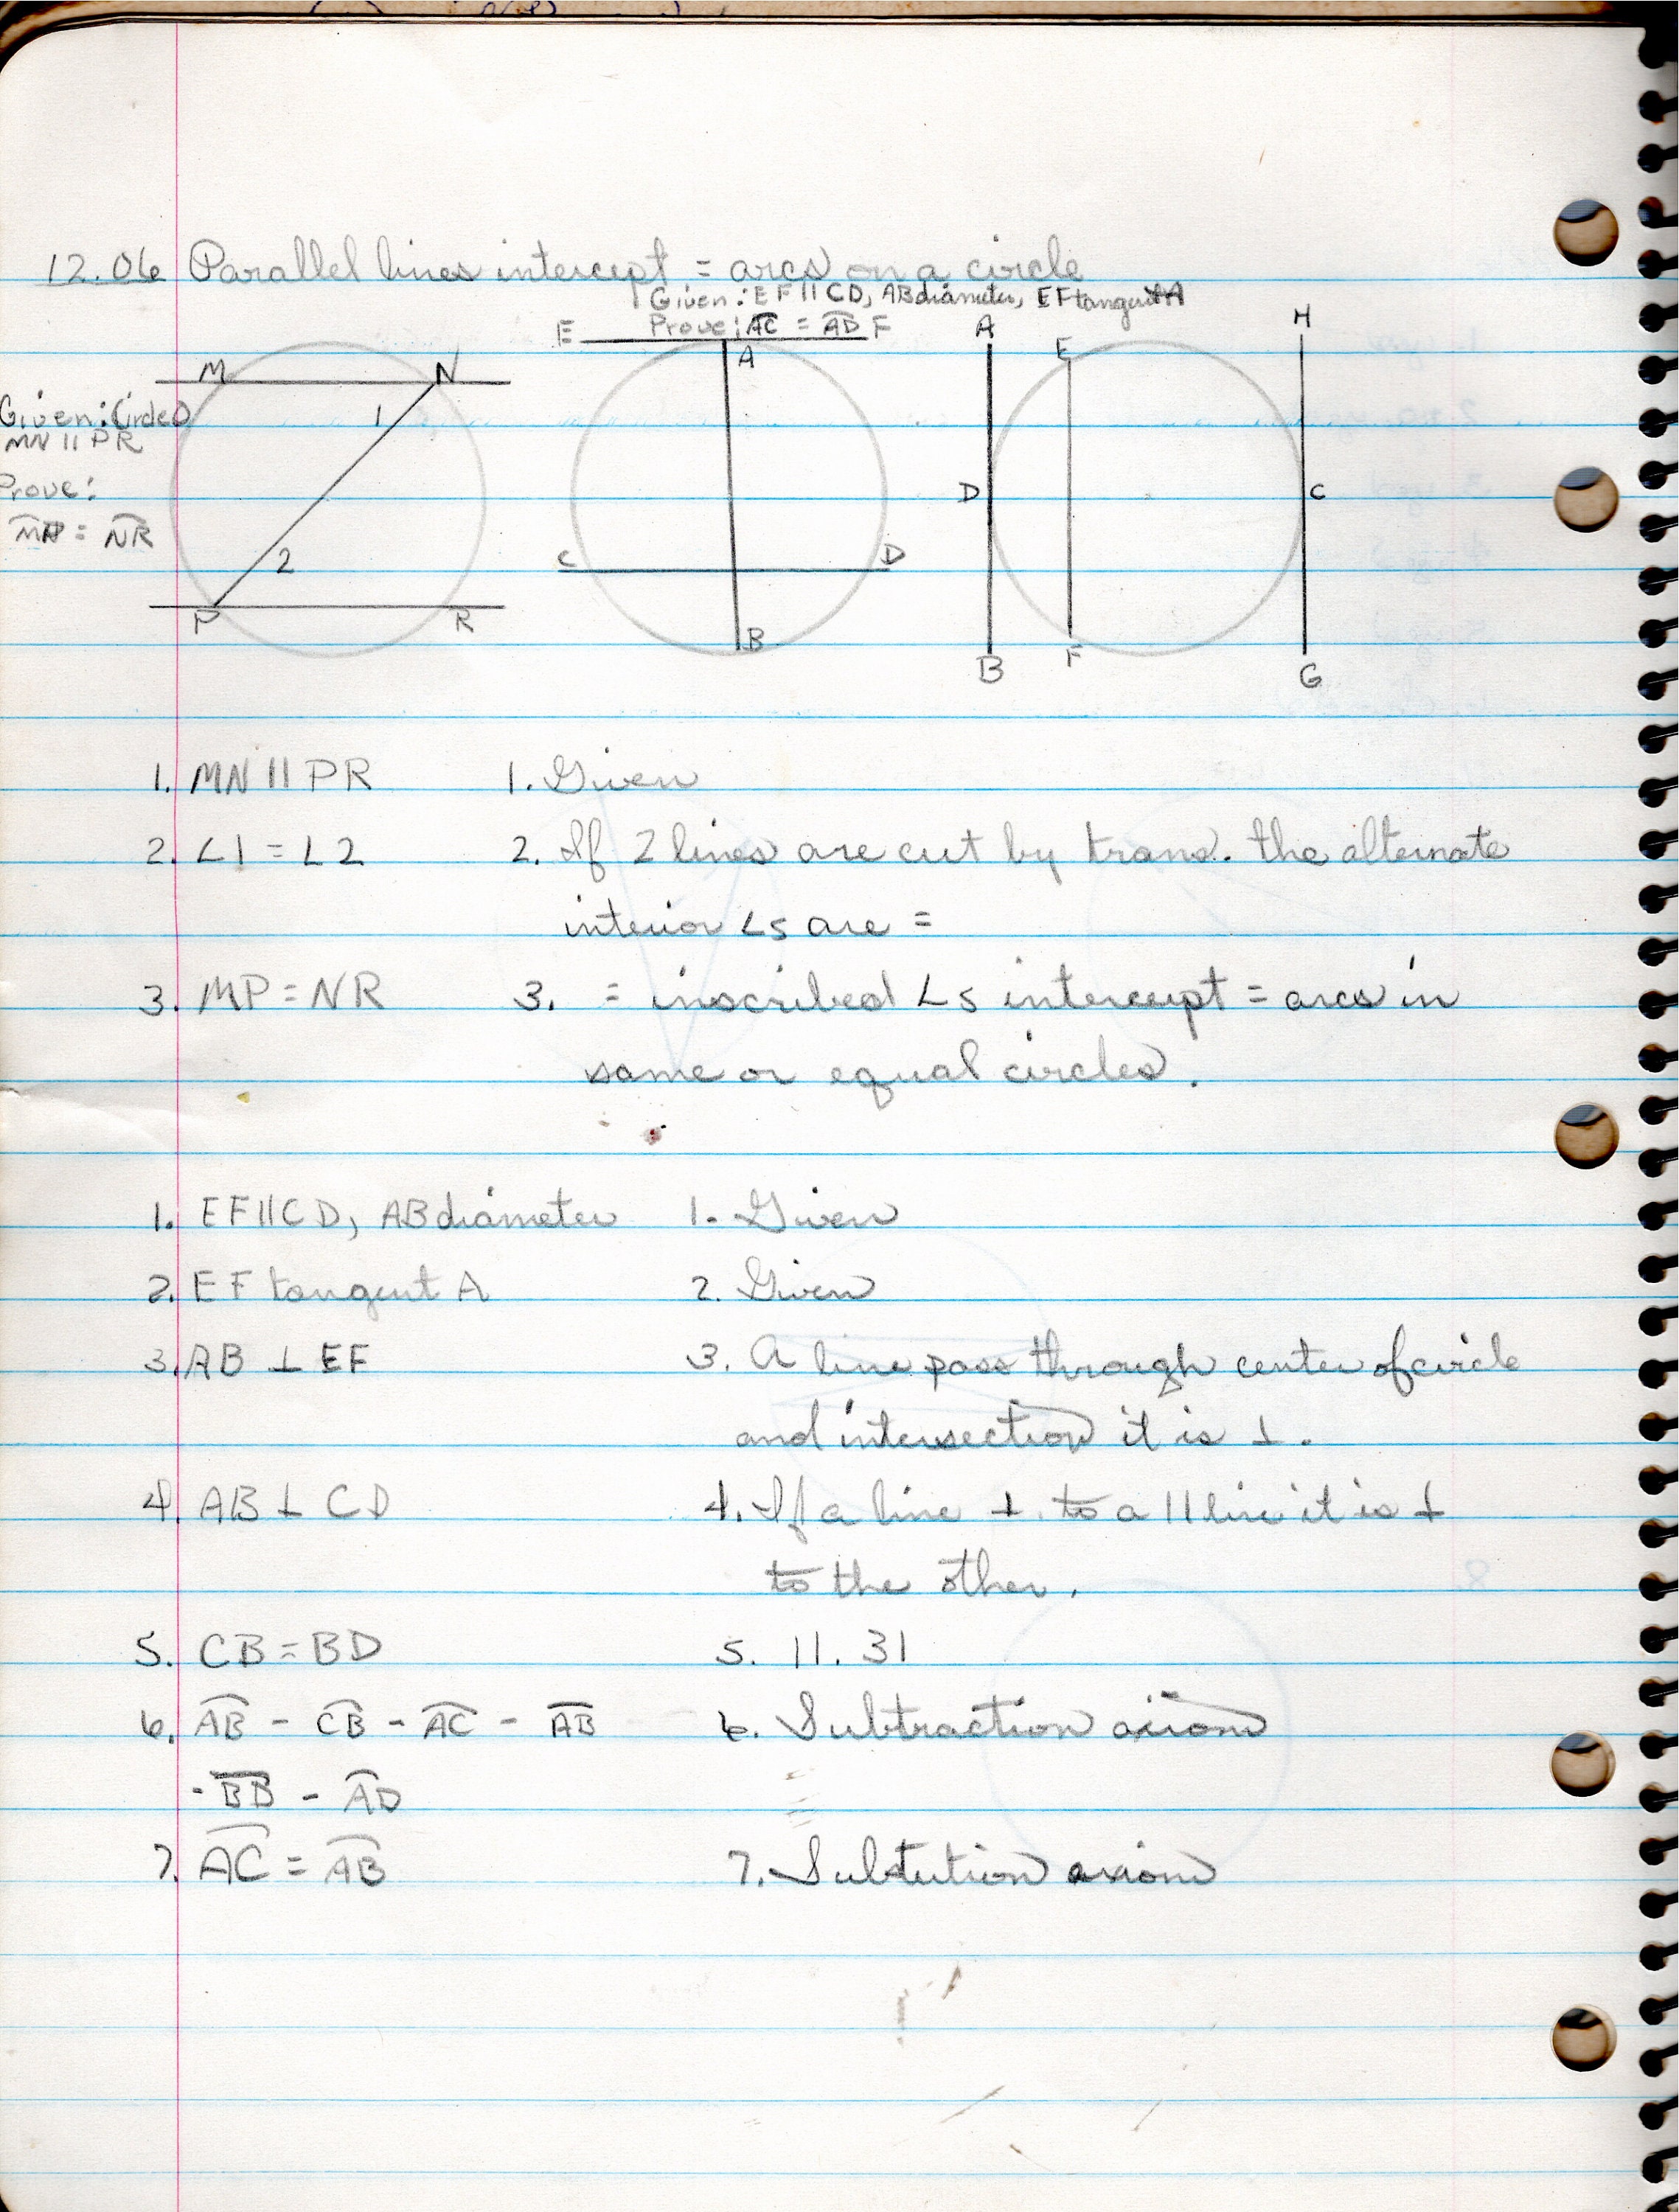 12.06 Parallel lines intercept = arcs on a circle
Given: EF || CD, AB diameter, EF tangent A
Prove: AC = AD
E F
A
M N
1
Given: Circle O
MN || PR
Prove:
MP = NR
2
P R
C D
B
A
E
H
D
C
B
F
G
1. MN || PR 1. Given
2. ∠1 = ∠2 2. If 2 lines are cut by trans. the alternate
interior ∠s are =
3. MP = NR 3. = inscribed ∠s intercept = arcs in
same or equal circles.
1. EF || CD, AB diameter 1. Given
2. EF tangent A 2. Given
3. AB ⊥ EF 3. A line pass through center of circle
and intersection it is ⊥.
4. AB ⊥ CD 4. If a line ⊥ to a || line it is ⊥
to the other.
5. CB = BD 5. 11.31
6. AB - CB - AC - AB 6. Subtraction axiom
- BB - AD
7. AC = AB 7. Subtution axiom